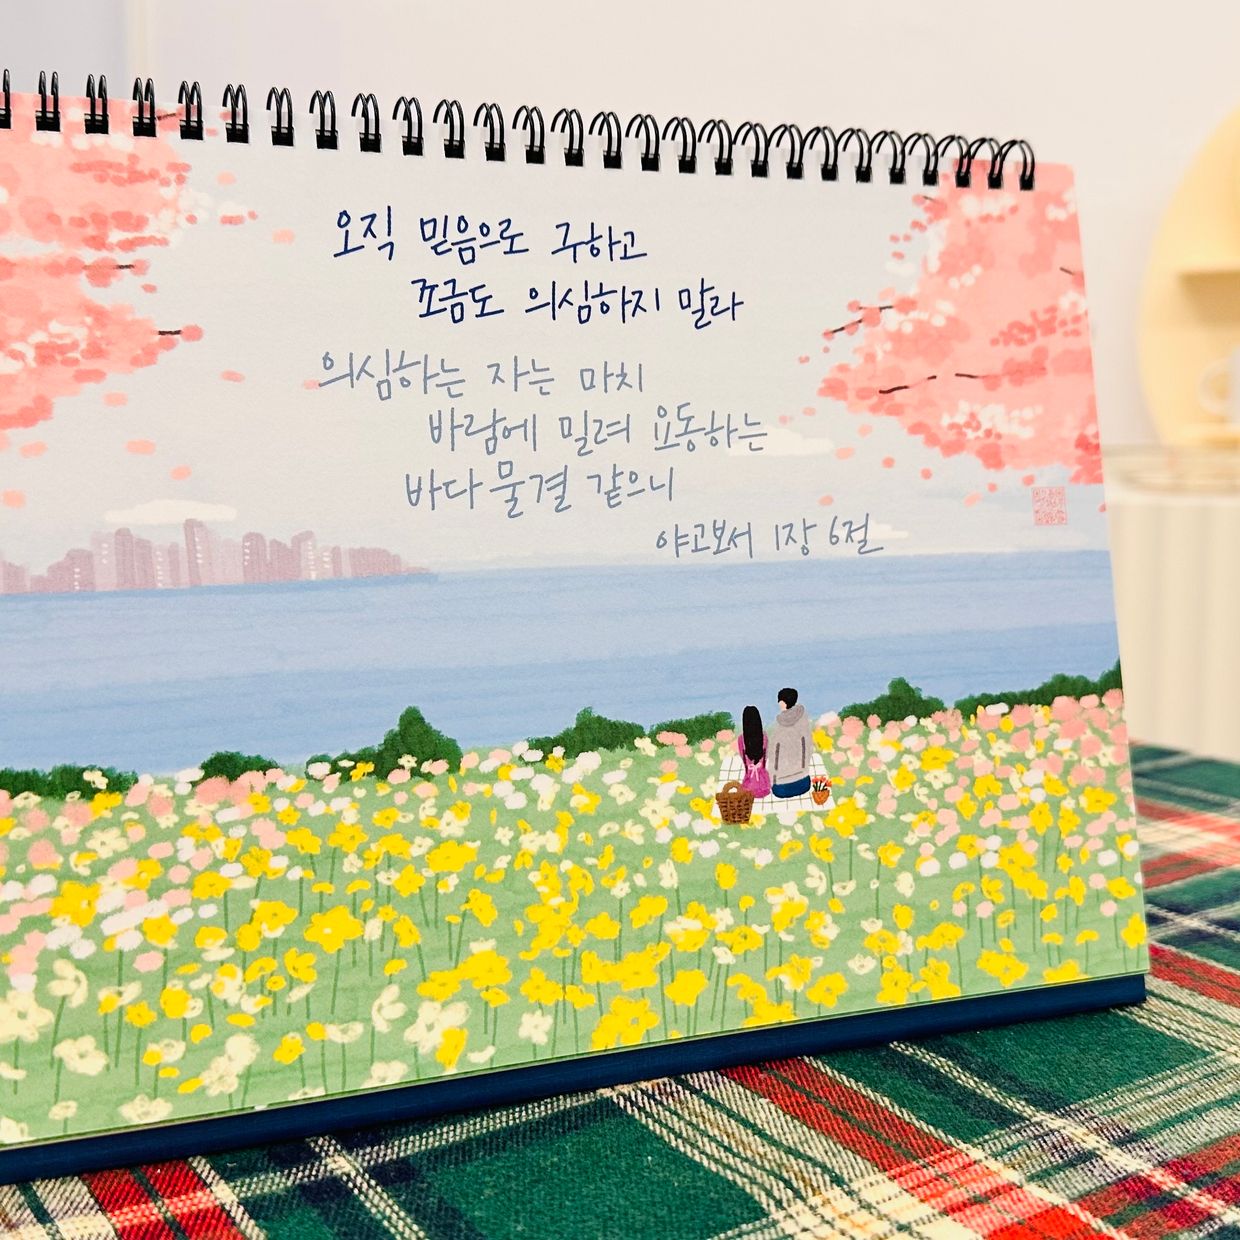 오직 믿음으로 구하고
조금도 의심하지 말라
의심하는 자는 마치
바람에 밀려 요동하는
바다 물결 같으니
야고보서 1장 6절